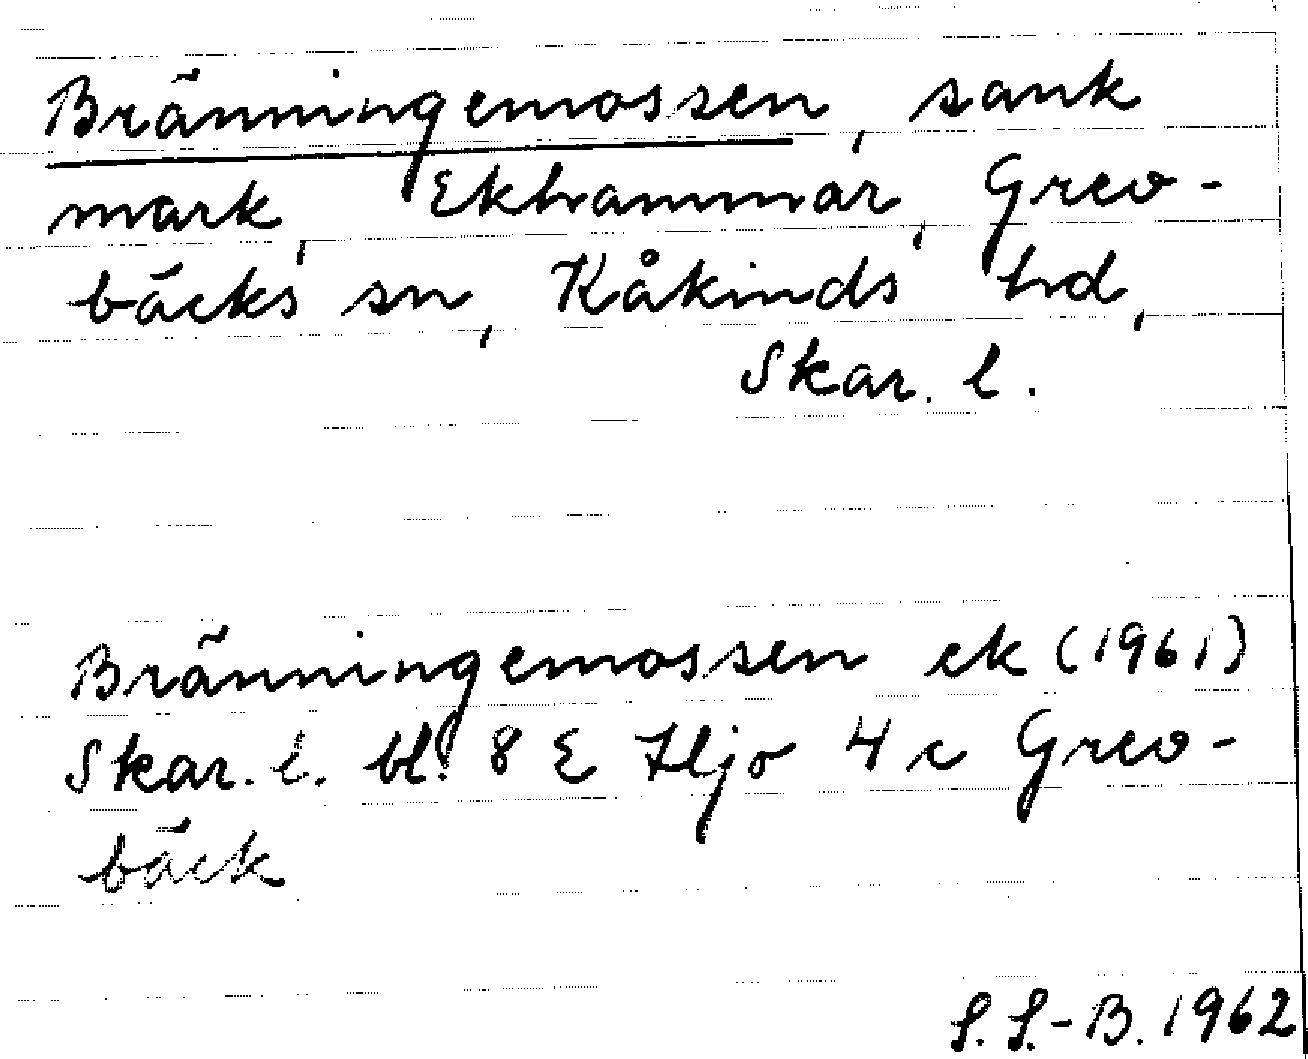 Bränningemossen, sank
mark, Ekhammar, Grev-
bäcks sn, Kåkinds hd,
Skar. l.
Bränningemossen ek (1961)
Skar. l. bl. 8 E Hjo 4 c Grev-
bäck
S. S.-B. 1962